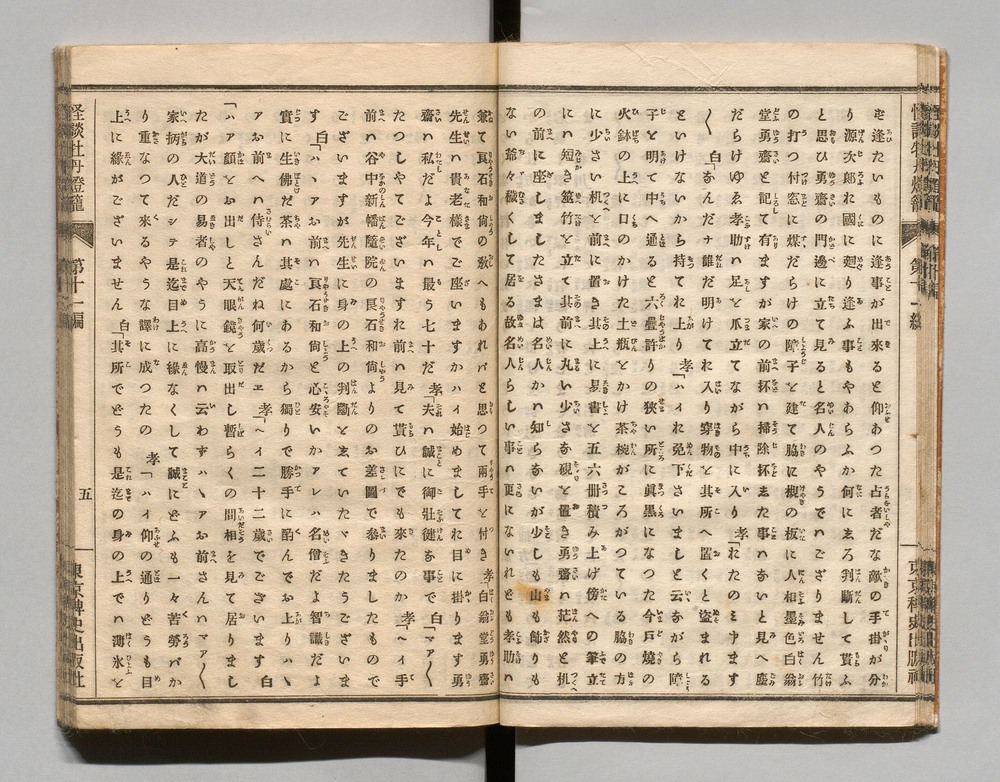 怪談牡丹燈籠
第十一編
東京稗史出版社
も逢たいものに逢事が出來ると仰あつた占者だな敵の手掛が分
り源次郎お國に廻り逢ふ事もやあらふか何にゑろ判斷して貰ふ
と思ひ勇齋の門邊に立て見ると名人のやうでハござりません竹
の打つ付窓に煤だらけの障子を建て脇に欅の板に人相墨色白翁
堂勇齋と記して有ますが家の前抔ハ掃除抔ゑた事ハないと見へ塵
だらけゆゑ孝助ハ足を爪立てながら中に入り 孝「おたのミ申ます
〱 白「なんだナ誰だ明けてお入り穿物を其所へ置くと盜まれる
といけないから持てお上り 孝「ハイお免下さいましと云ながら障
子を明て中へ通ると六疊許りの狹い所に眞黒になつた今戸燒の
火鉢の上に口のかけた土瓶をかけ茶椀がころがつている脇の方
に少さい机を前に置き其上に易書を五六册積み上げ傍への筆立
にハ短き筮竹を立て其前に丸い少さな硯を置き勇齋ハ茫然と机
の前に座しましたさまは名人かハ知らないが少しも山も飾りも
ない爺々穢くして居る故名人らしい事ハ更にないれども孝助ハ
兼て良石和尚の敎へもあれバと思つて兩手を付き 孝「白翁堂勇齋
先生ハ貴老樣でご座いますかハイ始めましてお目に掛ります勇
齋ハ私だよ今年ハ最う七十だ 孝「夫ハ誠に御壯健な事で 白「マア〱
たつしやでございますお前ハ見て貰ひにでも來たのか 孝「ヘイ手
前ハ谷中新幡隨院の良石和尚よりのお差圖で參りましたもので
ございますが先生に身の上の判斷をゑていたゞきたうございま
す 白「ハアお前ハ良石和尚と心安いかアレハ名僧だよ智識だよ
實に生佛だ茶ハ其處にあるから獨りで勝手に酌んでお上りハヽ
アお前ハ侍さんだね何歳だヱ 孝「ヘイ二十二歳でございます 白
「ハア顏をお出しと天眼鏡を取出し暫らくの間相を見て居りまし
たが大道の易者のやうに高慢ハ云わずハヽアお前さんハマア〱
家柄の人だシテ是迄目上に縁なくして誠にどふも一々苦勞バか
り重なつて來るやうな譯に成つたの 孝「ハイ仰の通りどうも目
上に縁がございません 白「其所でどうも是迄の身の上でハ薄氷を
怪談牡丹燈籠
第十一編
五
東京稗史出版社